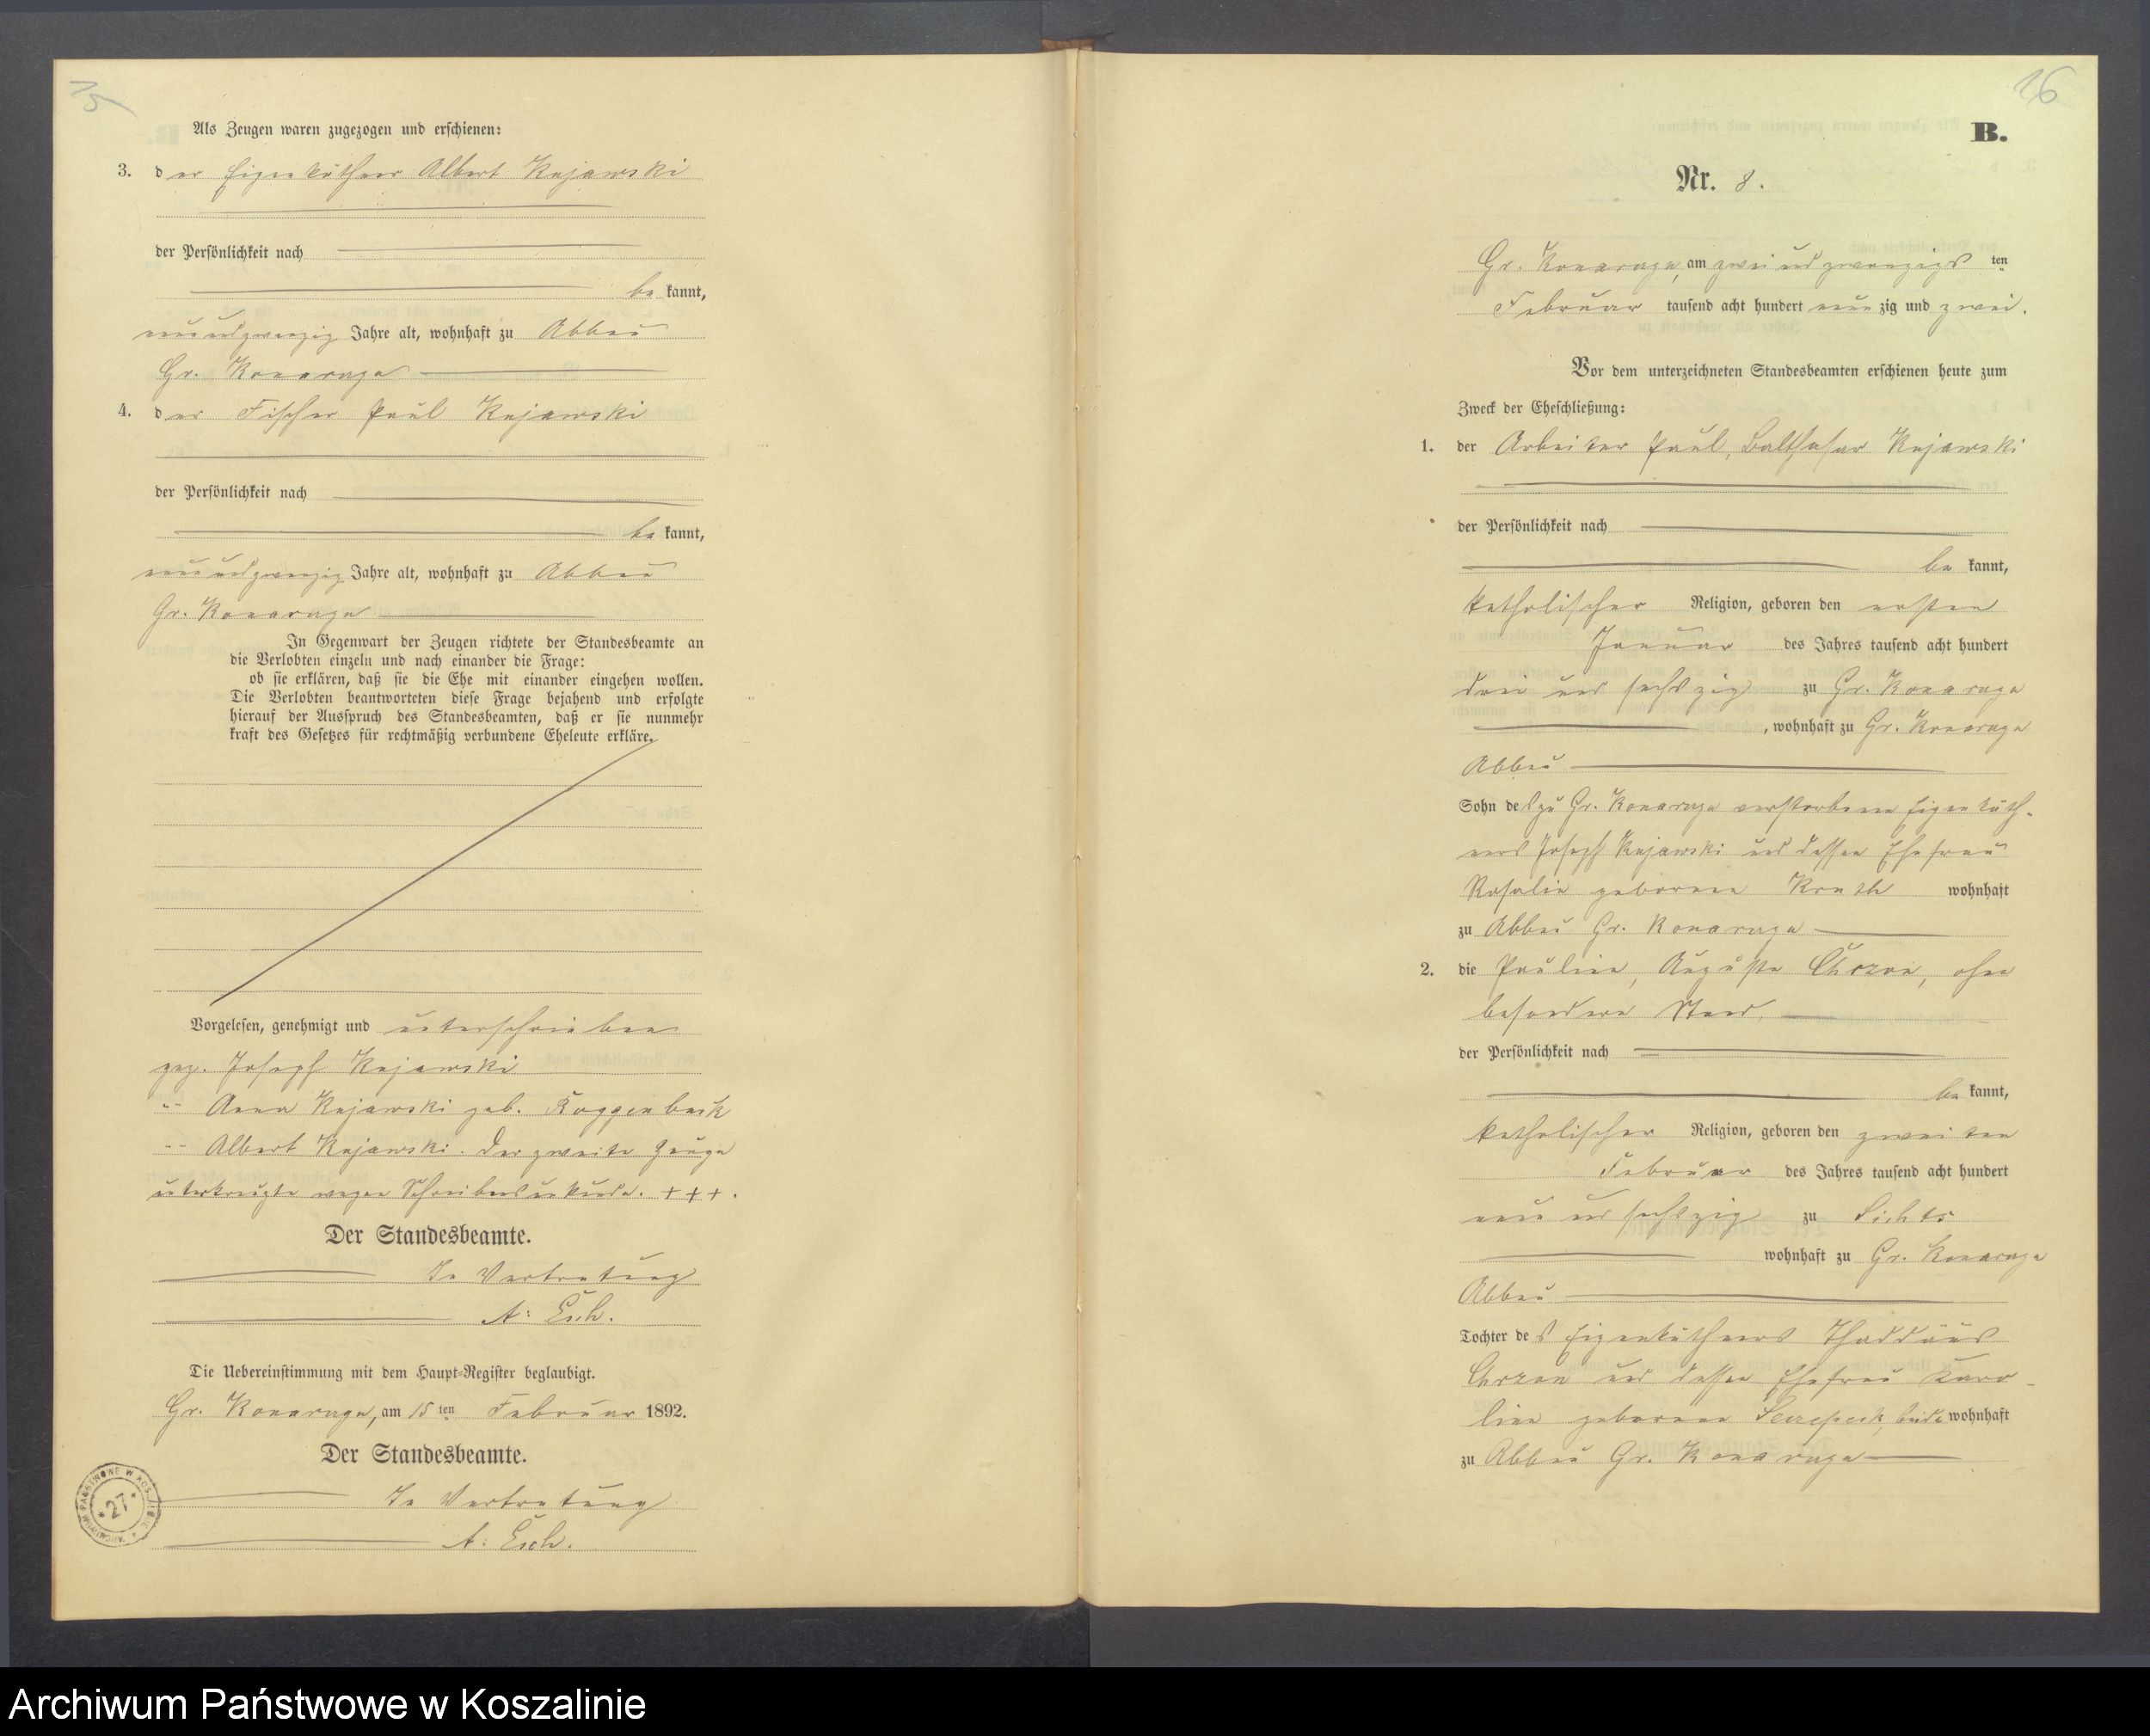 15
Als Zeugen waren zugezogen und erschienen:
3. der Eigenkäthner Albert Kujawski
der Persönlichkeit nach
be kannt,
neunundzwanzig Jahre alt, wohnhaft zu Abbau
Gr. Konarzyn
4. der Fischer Paul Kujawski
der Persönlichkeit nach
be kannt,
neunundzwanzig Jahre alt, wohnhaft zu Abbau
Gr. Konarzyn
In Gegenwart der Zeugen richtete der Standesbeamte an
die Verlobten einzeln und nach einander die Frage:
ob sie erklären, daß sie die Ehe mit einander eingehen wollen.
Die Verlobten beantworteten diese Frage bejahend und erfolgte
hierauf der Ausspruch des Standesbeamten, daß er sie nunmehr
kraft des Gesetzes für rechtmäßig verbundene Eheleute erkläre.
Vorgelesen, genehmigt und unterschrieben
gez. Joseph Kujawski
" Anna Kujawski geb. Roggenbuck
" Albert Kujawski. Der zweite Zeuge
unterkreuzte wegen Schreibensunkunde. +++.
Der Standesbeamte.
In Vertretung
A: Esch.
Die Uebereinstimmung mit dem Haupt-Register beglaubigt.
Gr. Konarzyn, am 15 ten Februar 1892.
Der Standesbeamte.
In Vertretung
A: Esch.
27
16
B.
Nr. 8.
Gr. Konarzyn, am zwei und zwanzigs ten
Februar tausend acht hundert neun zig und zwei.
Vor dem unterzeichneten Standesbeamten erschienen heute zum
Zweck der Eheschließung:
1. der Arbeiter Paul, Balthasar Kujawski
der Persönlichkeit nach
be kannt,
katholischer Religion, geboren den ersten
Januar des Jahres tausend acht hundert
drei und sechszig zu Gr. Konarzyn
, wohnhaft zu Gr. Konarzyn
Abbau
Sohn des zu Gr. Konarzyn verstorbenen Eigenkäth-
ners Joseph Kujawski und dessen Ehefrau
Rosalie geborene wohnhaft
zu Abbau Gr. Konarzyn
2. die Pauline, Auguste Chrzon, ohne
besonderen Stand,
der Persönlichkeit nach
be kannt,
katholischer Religion, geboren den zwei ten
Februar des Jahres tausend acht hundert
neun und sechszig zu
wohnhaft zu Gr. Konarzyn
Abbau
Tochter des Eigenkäthners Thaddäus
Chrzon und dessen Ehefrau Karo-
line geborene beide wohnhaft
zu Abbau Gr. Konarzyn
Archiwum Państwowe w Koszalinie